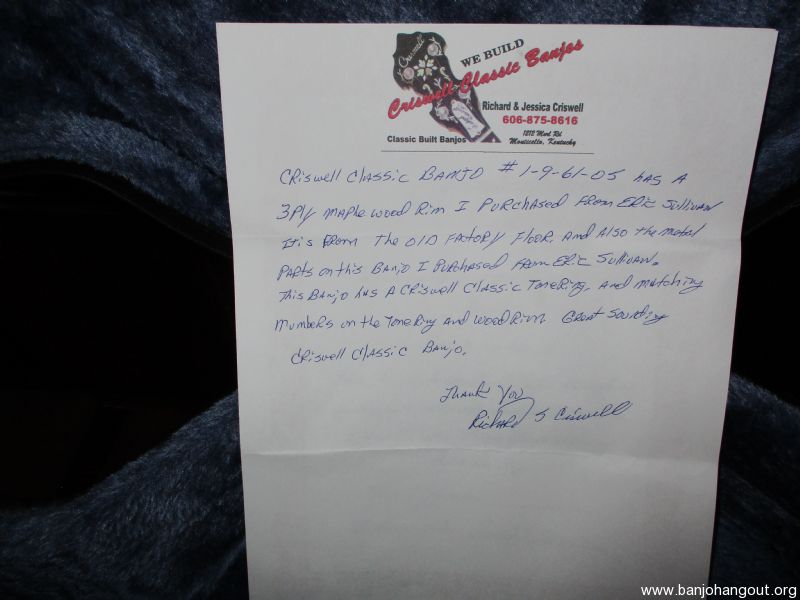 Criswell
WE BUILD
Criswell Classic Banjos
Richard & Jessica Criswell
606-875-8616
1212 Mort Rd
Classic Built Banjos
Monticello, Kentucky
CRiswell Classic BANJO #1-9-61-05 has A
3Ply maple wood Rim I PURCHASED FROM ERic Sullivan
It's FROM The Old FACTORY Floor, And Also the metal
PARTS on this BANJO I PURCHASED FROM ERic Sullivan.
This BANJO has A CRiswell Classic ToneRing, And matching
Numbers on the ToneRing and Wood Rim Great Sounding
CRiswell Classic Banjo.
Thank You
Richard S Criswell
www.banjohangout.org